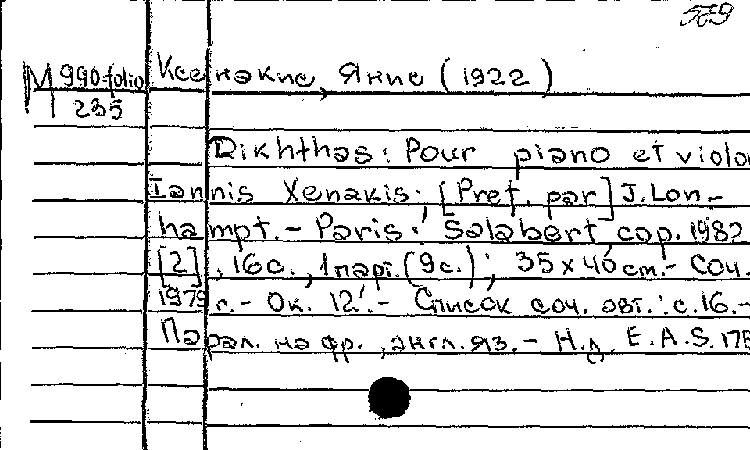 569
М 990-folio
235
Ксенакис, Янис (1922)
Dikhthas: Pour piano et violo
Iannis Xenakis; [Pref. par] J. Lon-
hampt. - Paris: Salabert, cop. 1982
[2], 16с., 1 парт. (9с.); 35 x 40 cm. - Соч.
1979 г. - Ок. 12'. - Список соч. авт.: с. 16. -
Парал. на фр., англ. яз. - Н.д. E.A.S. 175